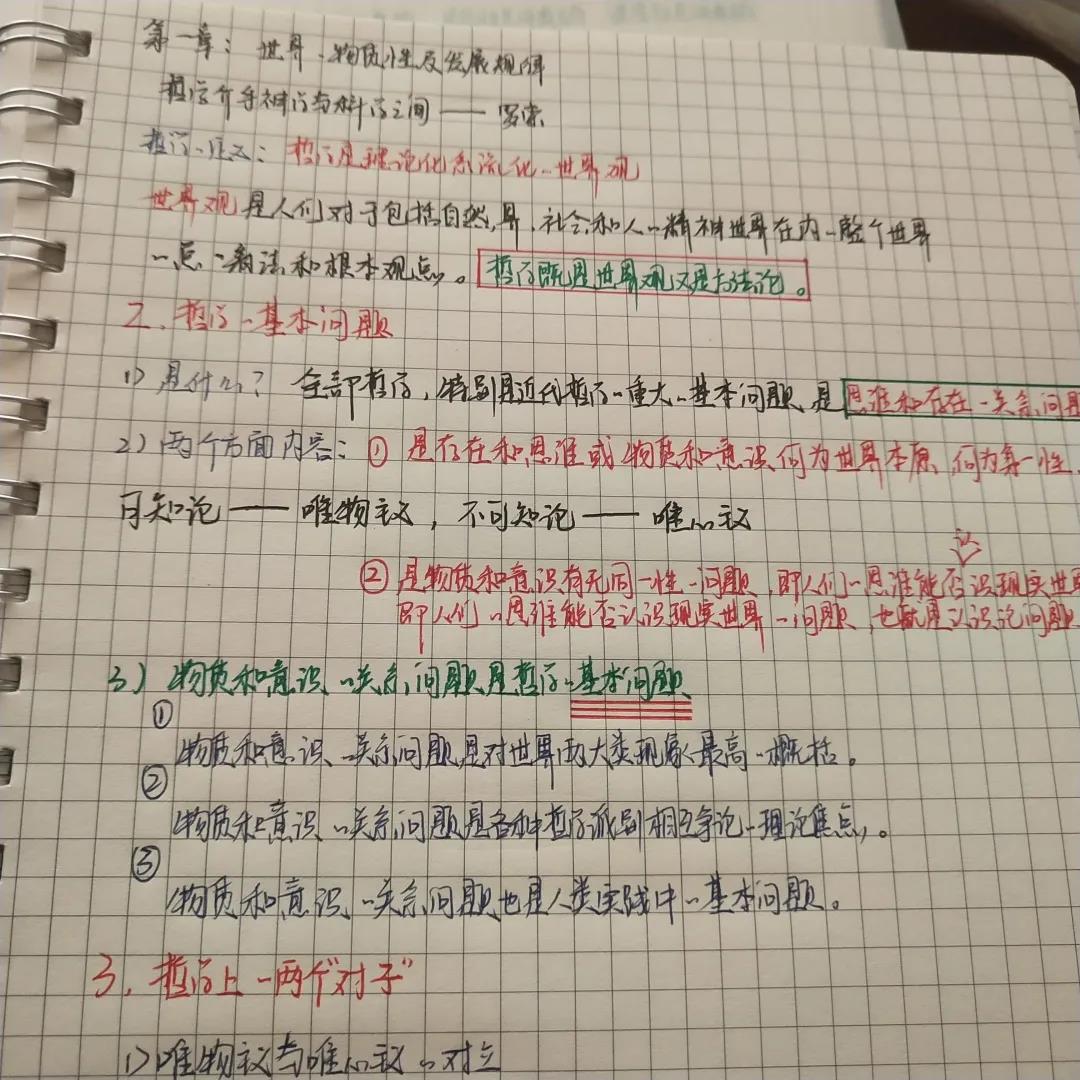 第一章：世界的物质性及发展规律
哲学介乎神学与科学之间——罗素
哲学的定义：哲学是理论化系统化的世界观
世界观是人们对于包括自然界、社会和人的精神世界在内的整个世界
的总的看法和根本观点。哲学既是世界观又是方法论。
2、哲学的基本问题
1）是什么？全部哲学，特别是近代哲学的重大的基本问题，是思维和存在的关系问题
2）两个方面内容：① 是存在和思维或物质和意识何为世界本原、何为第一性、
可知论——唯物主义，不可知论——唯心主义
认
② 是物质和意识有无同一性的问题，即人们的思维能否识现实世
即人们的思维能否认识现实世界的问题，也就是认识论问题
3）物质和意识的关系问题是哲学的基本问题
①
物质和意识的关系问题是对世界两大类现象最高的概括。
②
物质和意识的关系问题是各种哲学派别相互争论的理论焦点。
③
物质和意识的关系问题也是人类实践中的基本问题。
3、哲学上的两个“对子”
1）唯物主义与唯心主义的对立